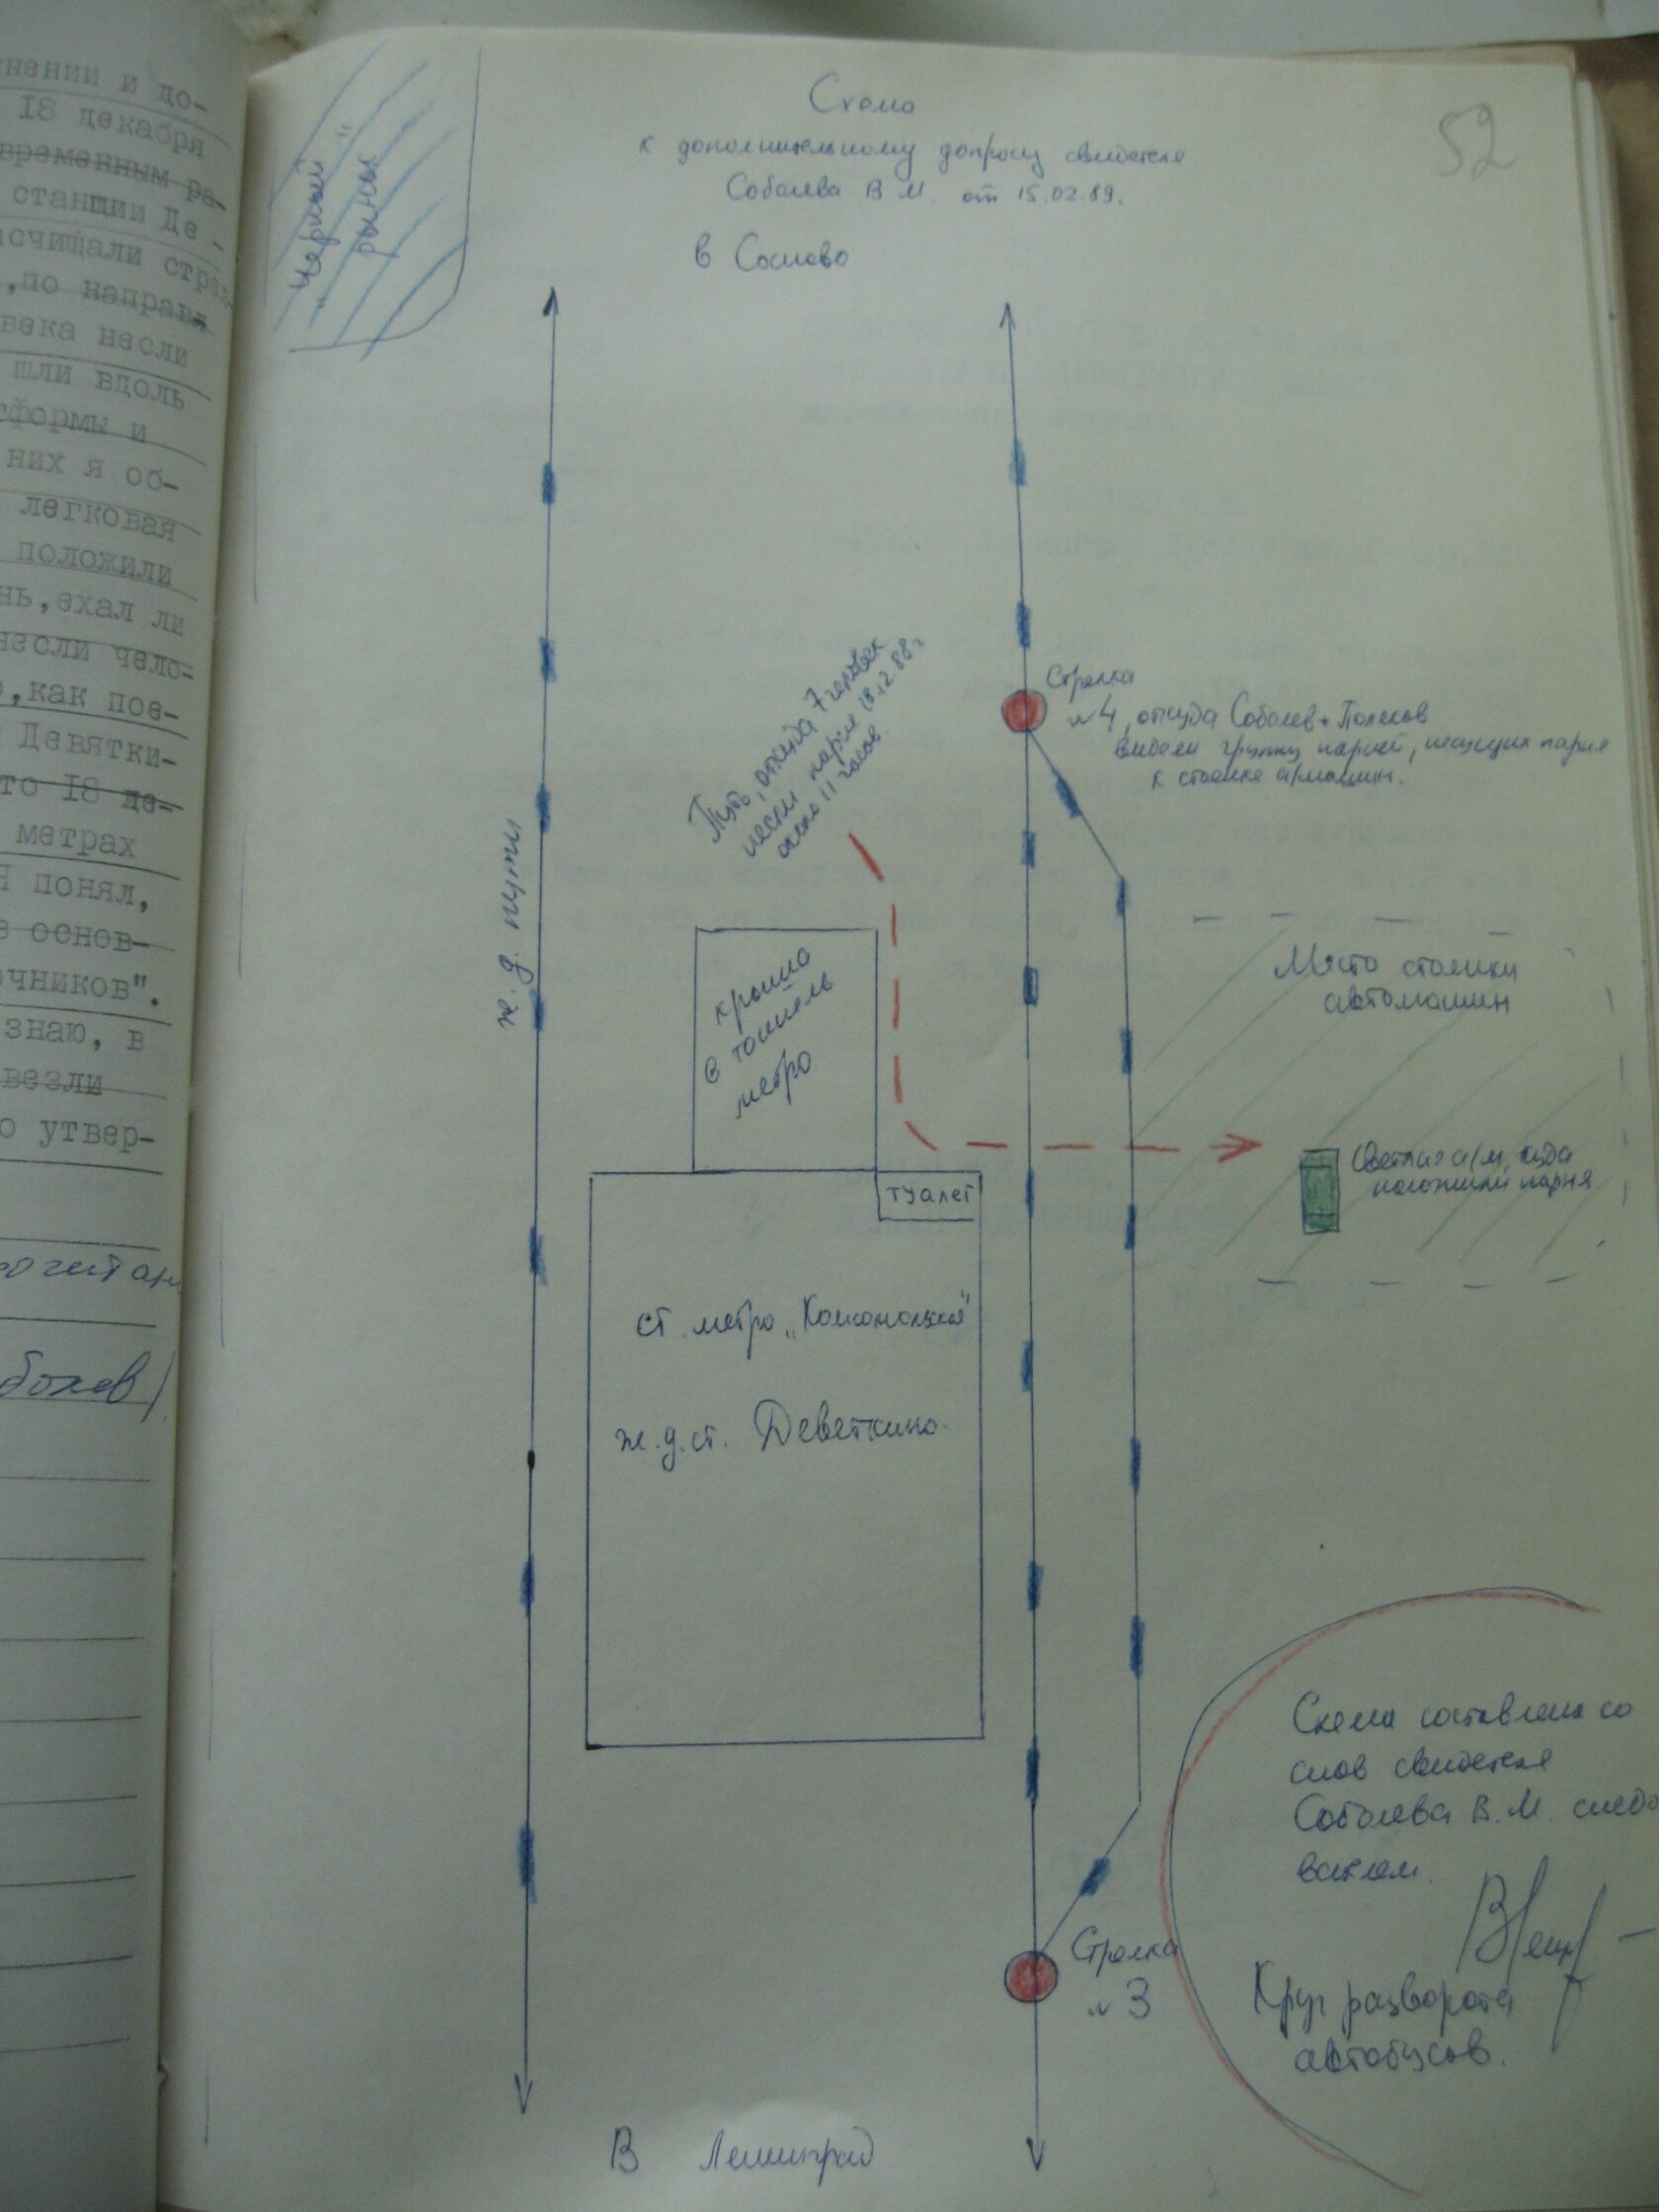 нении и до-
18 декабря
временным ра-
станции Де -
счищали стрел
,по направл
века несли
шли вдоль
формы и
них я об-
легковая
положили
нь,ехал ли
несли чело-
,как пое-
Девятки-
то 18 де-
метрах
Я понял,
в основ-
очников".
знаю, в
везли
о утвер-
52
Схема
к дополнительному допросу свидетеля
Соболева В М. от 15.02.89.
"черный
рынок"
в Сосново
Путь, откуда 7 человек
несли парня 18.12.88 г
около 11 часов
Стрелка
№4, откуда Соболев + Полесов
видели группу парней, несущих парня
к стоянке а/машин.
ж. д. пути
крыша
в тоннель
метро
Место стоянки
автомашин
Светлая а/м, куда
положили парня
туалет
ст. метро „Комсомольская"
ж.д.ст. Девяткино
Схема составлена со
слов свидетеля
Соболева В. М. следо
вателем.
Стрелка
№3
Круг разворота
автобусов.
В Ленинград